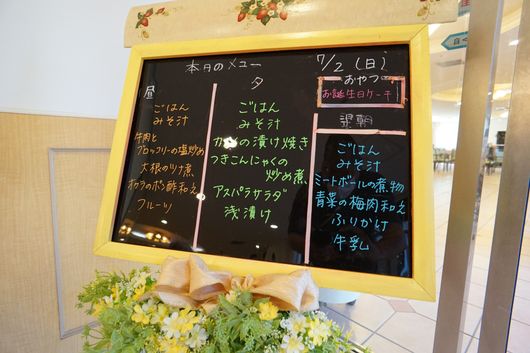 本日のメニュー
7/2(日)
昼
ごはん
みそ汁
牛肉と
ブロッコリーの塩炒め
大根のツナ煮
オクラのポン酢和え
フルーツ
夕
ごはん
みそ汁
の漬け焼き
つきこんにゃくの
炒め煮
アスパラサラダ
浅漬け
おやつ
お誕生日ケーキ
翌朝
ごはん
みそ汁
ミートボールの煮物
青菜の梅肉和え
ふりかけ
牛乳